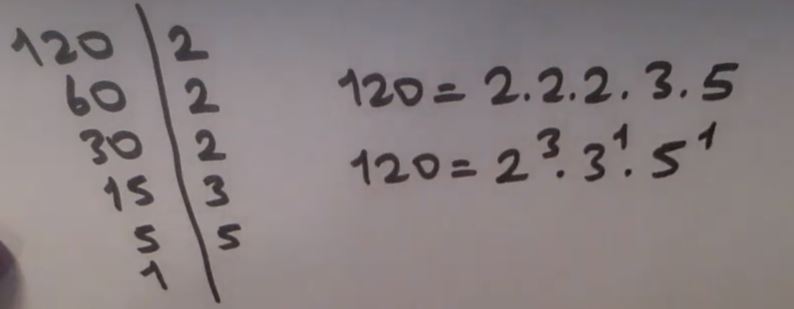 120 | 2
60 | 2
30 | 2
15 | 3
5 | 5
1 |
120 = 2.2.2.3.5
120 = 2³.3¹.5¹